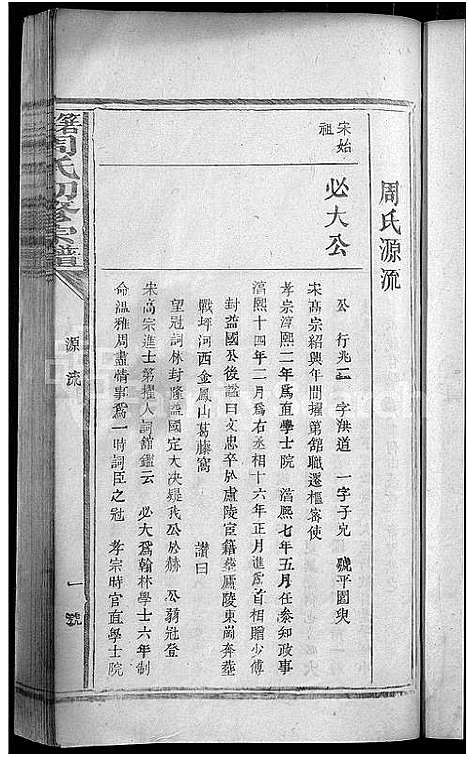 周氏源流
宋始祖
必大公
公 行兆三 字洪道 一字子兌 號平園叟
宋高宗紹興年間擢第舘職選樞宻使
孝宗淳熙二年為直學士院 淳熙七年五月任叅知政事
淳熙十四年二月為右丞相十六年正月進為首相贈少傅
封益國公後謚曰文忠卒於盧陵宦籍塟廬陵東崗奔塟
戰坪河西金鳳山葛藤窩 讚曰
望冠詞林封隆益國定大决疑我公於赫 公弱冠登
宋髙宗進士第擢入詞舘鑑云 必大爲翰林學士六年制
命温雅周盡情事爲一時詞臣之冠 孝宗時官直學士院
周氏初修宗譜
源流
一 號